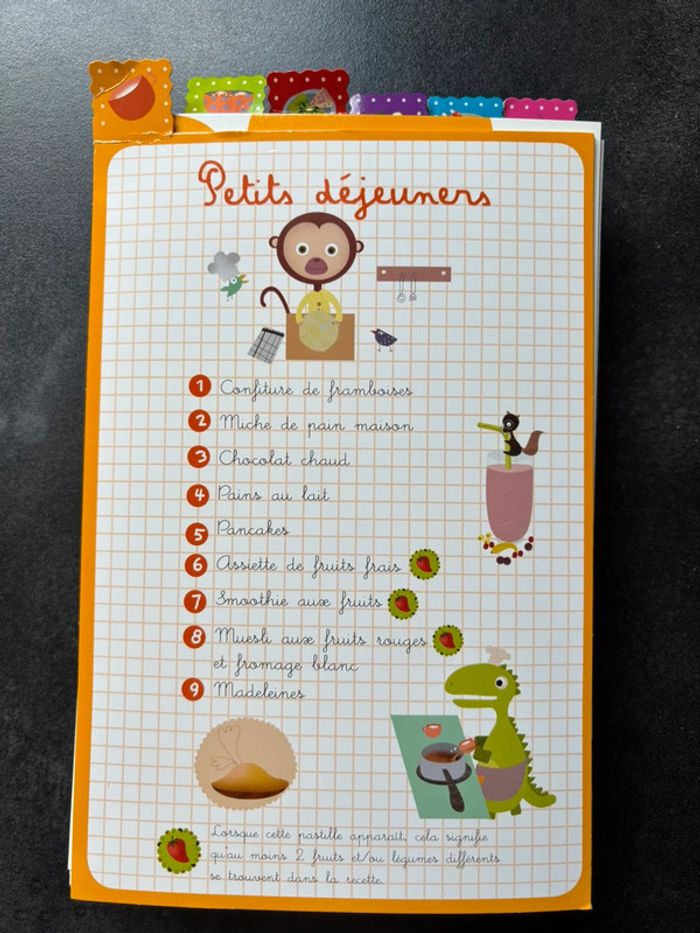 Petits déjeuners
1 Confiture de framboises
2 Miche de pain maison
3 Chocolat chaud
4 Pains au lait
5 Pancakes
6 Assiette de fruits frais
7 Smoothie aux fruits
8 Muesli aux fruits rouges
et fromage blanc
9 Madeleines
Lorsque cette pastille apparaît, cela signifie
qu'au moins 2 fruits et/ou légumes différents
se trouvent dans la recette.